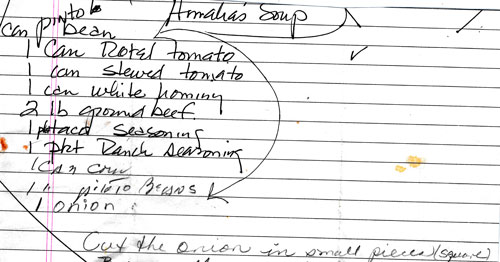 Amalia's Soup
can pinto bean
1 Can Rotel tomato
1 can stewed tomato
1 can white hominy
2 lb ground beef
1 pktaco seasoning
1 pkt Ranch seasoning
1 can corn
1 " pinto Beans
1 onion
Cut the onion in small pieces (square)